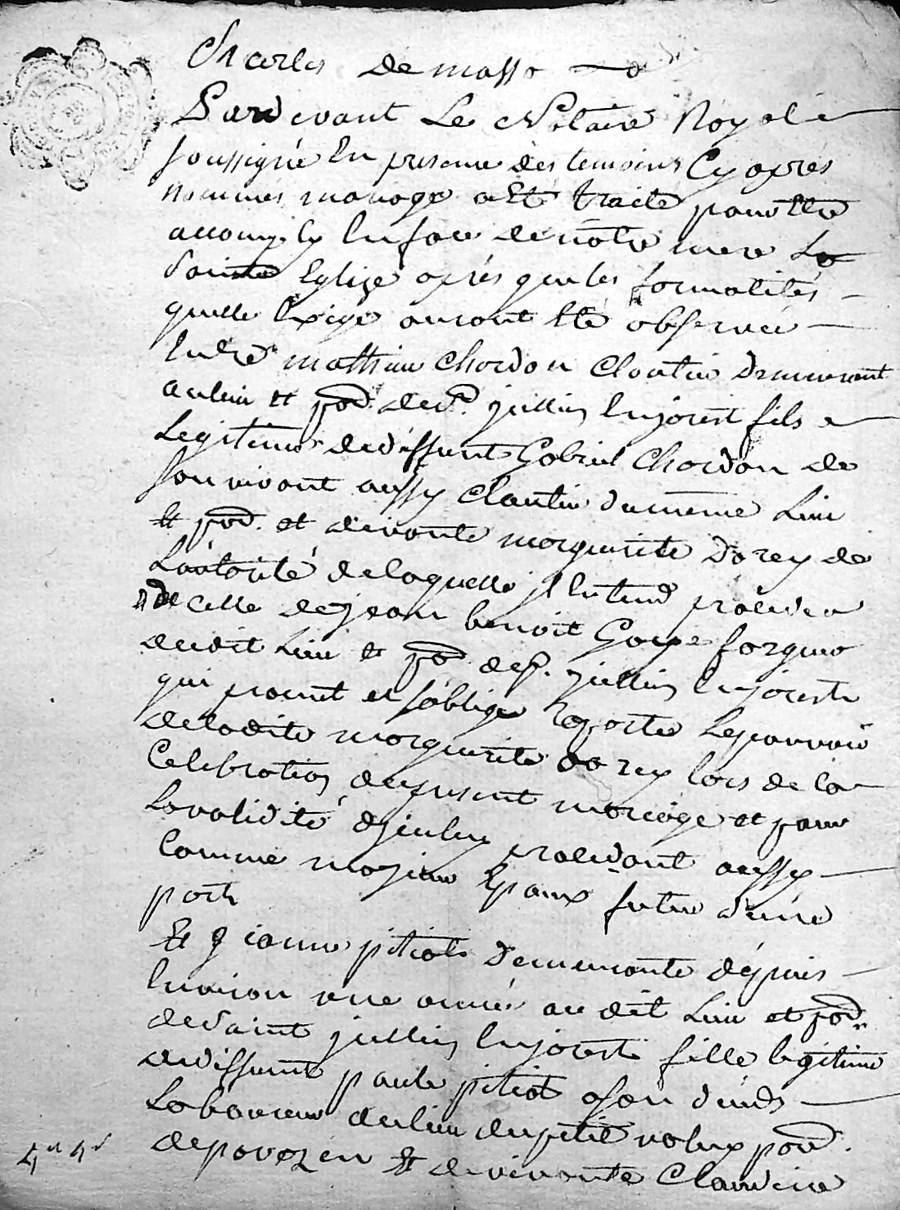 Charles de masso
Pardevant Le Notaire Royal
soussigné En presence des temoins Cy aprés
nommés mariage a Eté traité pour Etre
accomply En face de nôtre mere La
Sainte Eglize aprés que les formalités
quelle Exige auront Eté observée
Entre mathieu Chordon Cloutier Demeurant
au lieu et parr. de St. jullien En jarest fils
Legitime de deffunt Gabriel Chordon de
son vivant aussy Cloutier du meme Lieu
et parr. et vivante marguerite Dorey de
Lautorité de laquelle il Entend proceder
& de celle de jean benoit Goype forgeur
dudit Lieu et par. de St. jullien En jarest
qui promt et soblige raporter Le pouvoir
de ladite marguerite Dorey lors de la
Celebration du present mariage et pour
La validité dycelui procedant aussy
Comme majeur Epoux futur dune
part
Et jeanne pitiot Demeurante depuis
Environ une année au dit Lieu et parr.
de Saint jullien En jarest fille legitime
de deffunt paule pitiot
Laboureur du lieu du petit parr.
de pavezin Et de vivante Claudine